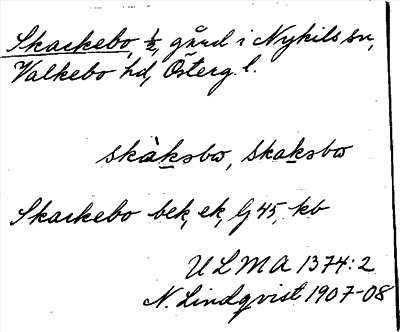 Skackebo, ½, gård i Nykils sn,
Valkebo hd, Österg. l.
skàkəbω, skakəbω
Skackebo bek, ek, lj 45, kb
ULMA 1374:2
N. Lindqvist 1907-08